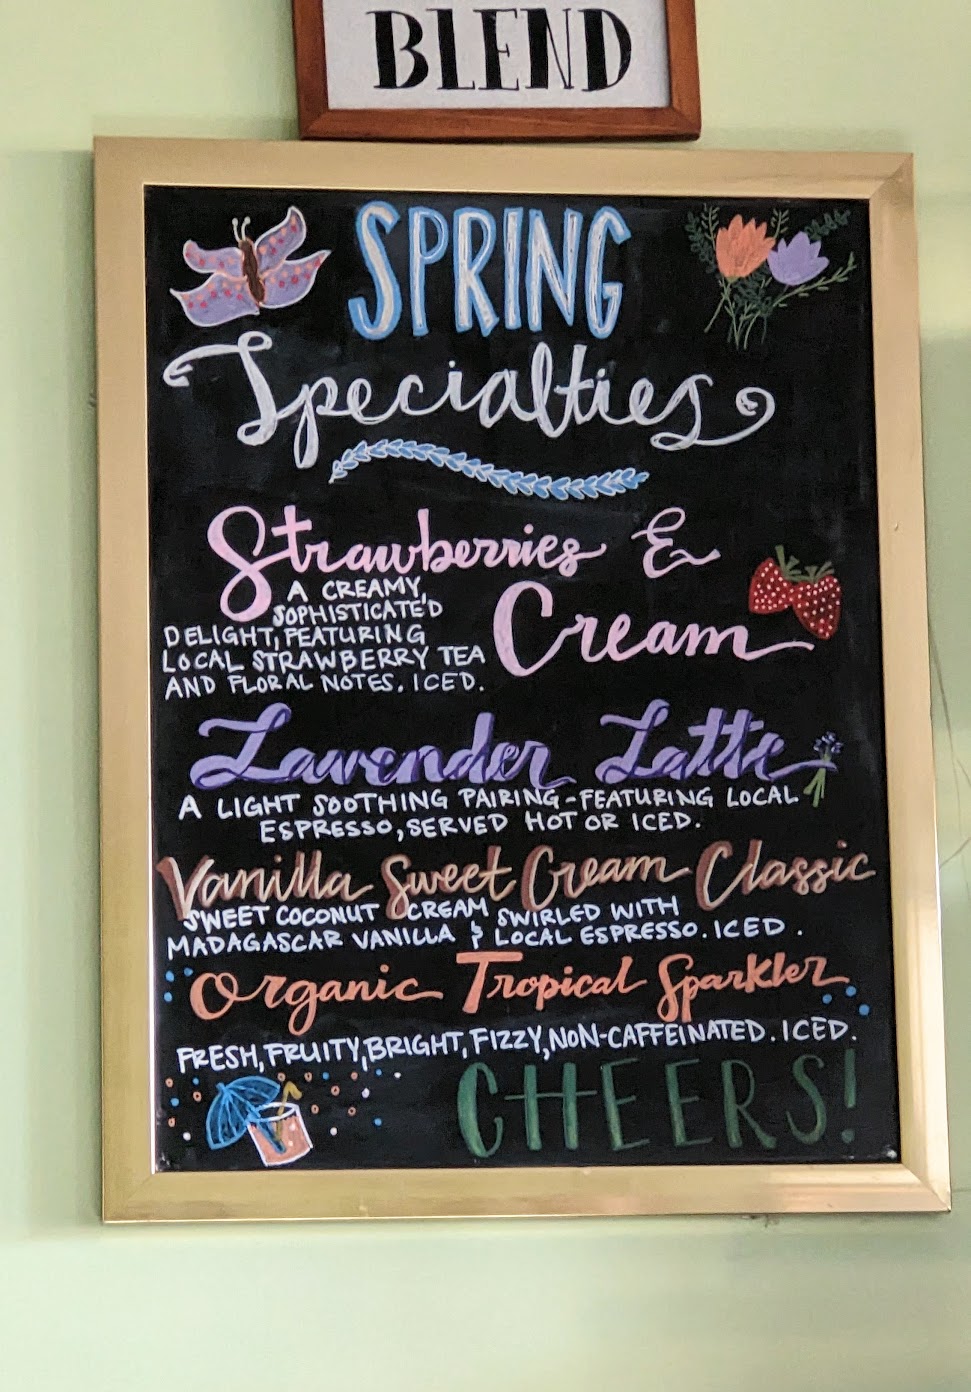 BLEND
SPRING
Specialties
Strawberries &
Cream
A CREAMY,
SOPHISTICATED
DELIGHT, FEATURING
LOCAL STRAWBERRY TEA
AND FLORAL NOTES. ICED.
Lavender Latte
A LIGHT SOOTHING PAIRING-FEATURING LOCAL
ESPRESSO, SERVED HOT OR ICED.
Vanilla Sweet Cream Classic
SWEET COCONUT CREAM SWIRLED WITH
MADAGASCAR VANILLA & LOCAL ESPRESSO. ICED.
Organic Tropical Sparkler
FRESH, FRUITY, BRIGHT, FIZZY, NON-CAFFEINATED. ICED.
CHEERS!